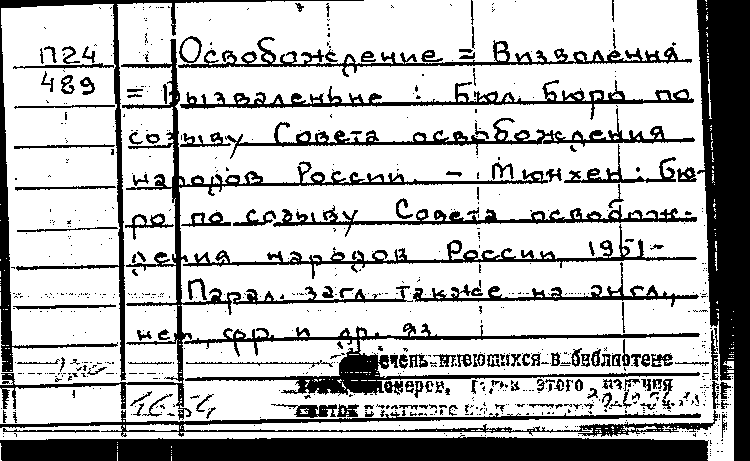 П24
489
Освобождение = Визволення
= Вызваленьне : Бюл. Бюро по
созыву Совета освобождения
народов России. – Мюнхен : Бю-
ро по созыву Совета освобож-
дения народов России, 1951-
Парал. загл. также на англ.,
нем., фр. и др. яз.
имеющихся в библиотеке
номеров, этого издания
в каталоге
1654